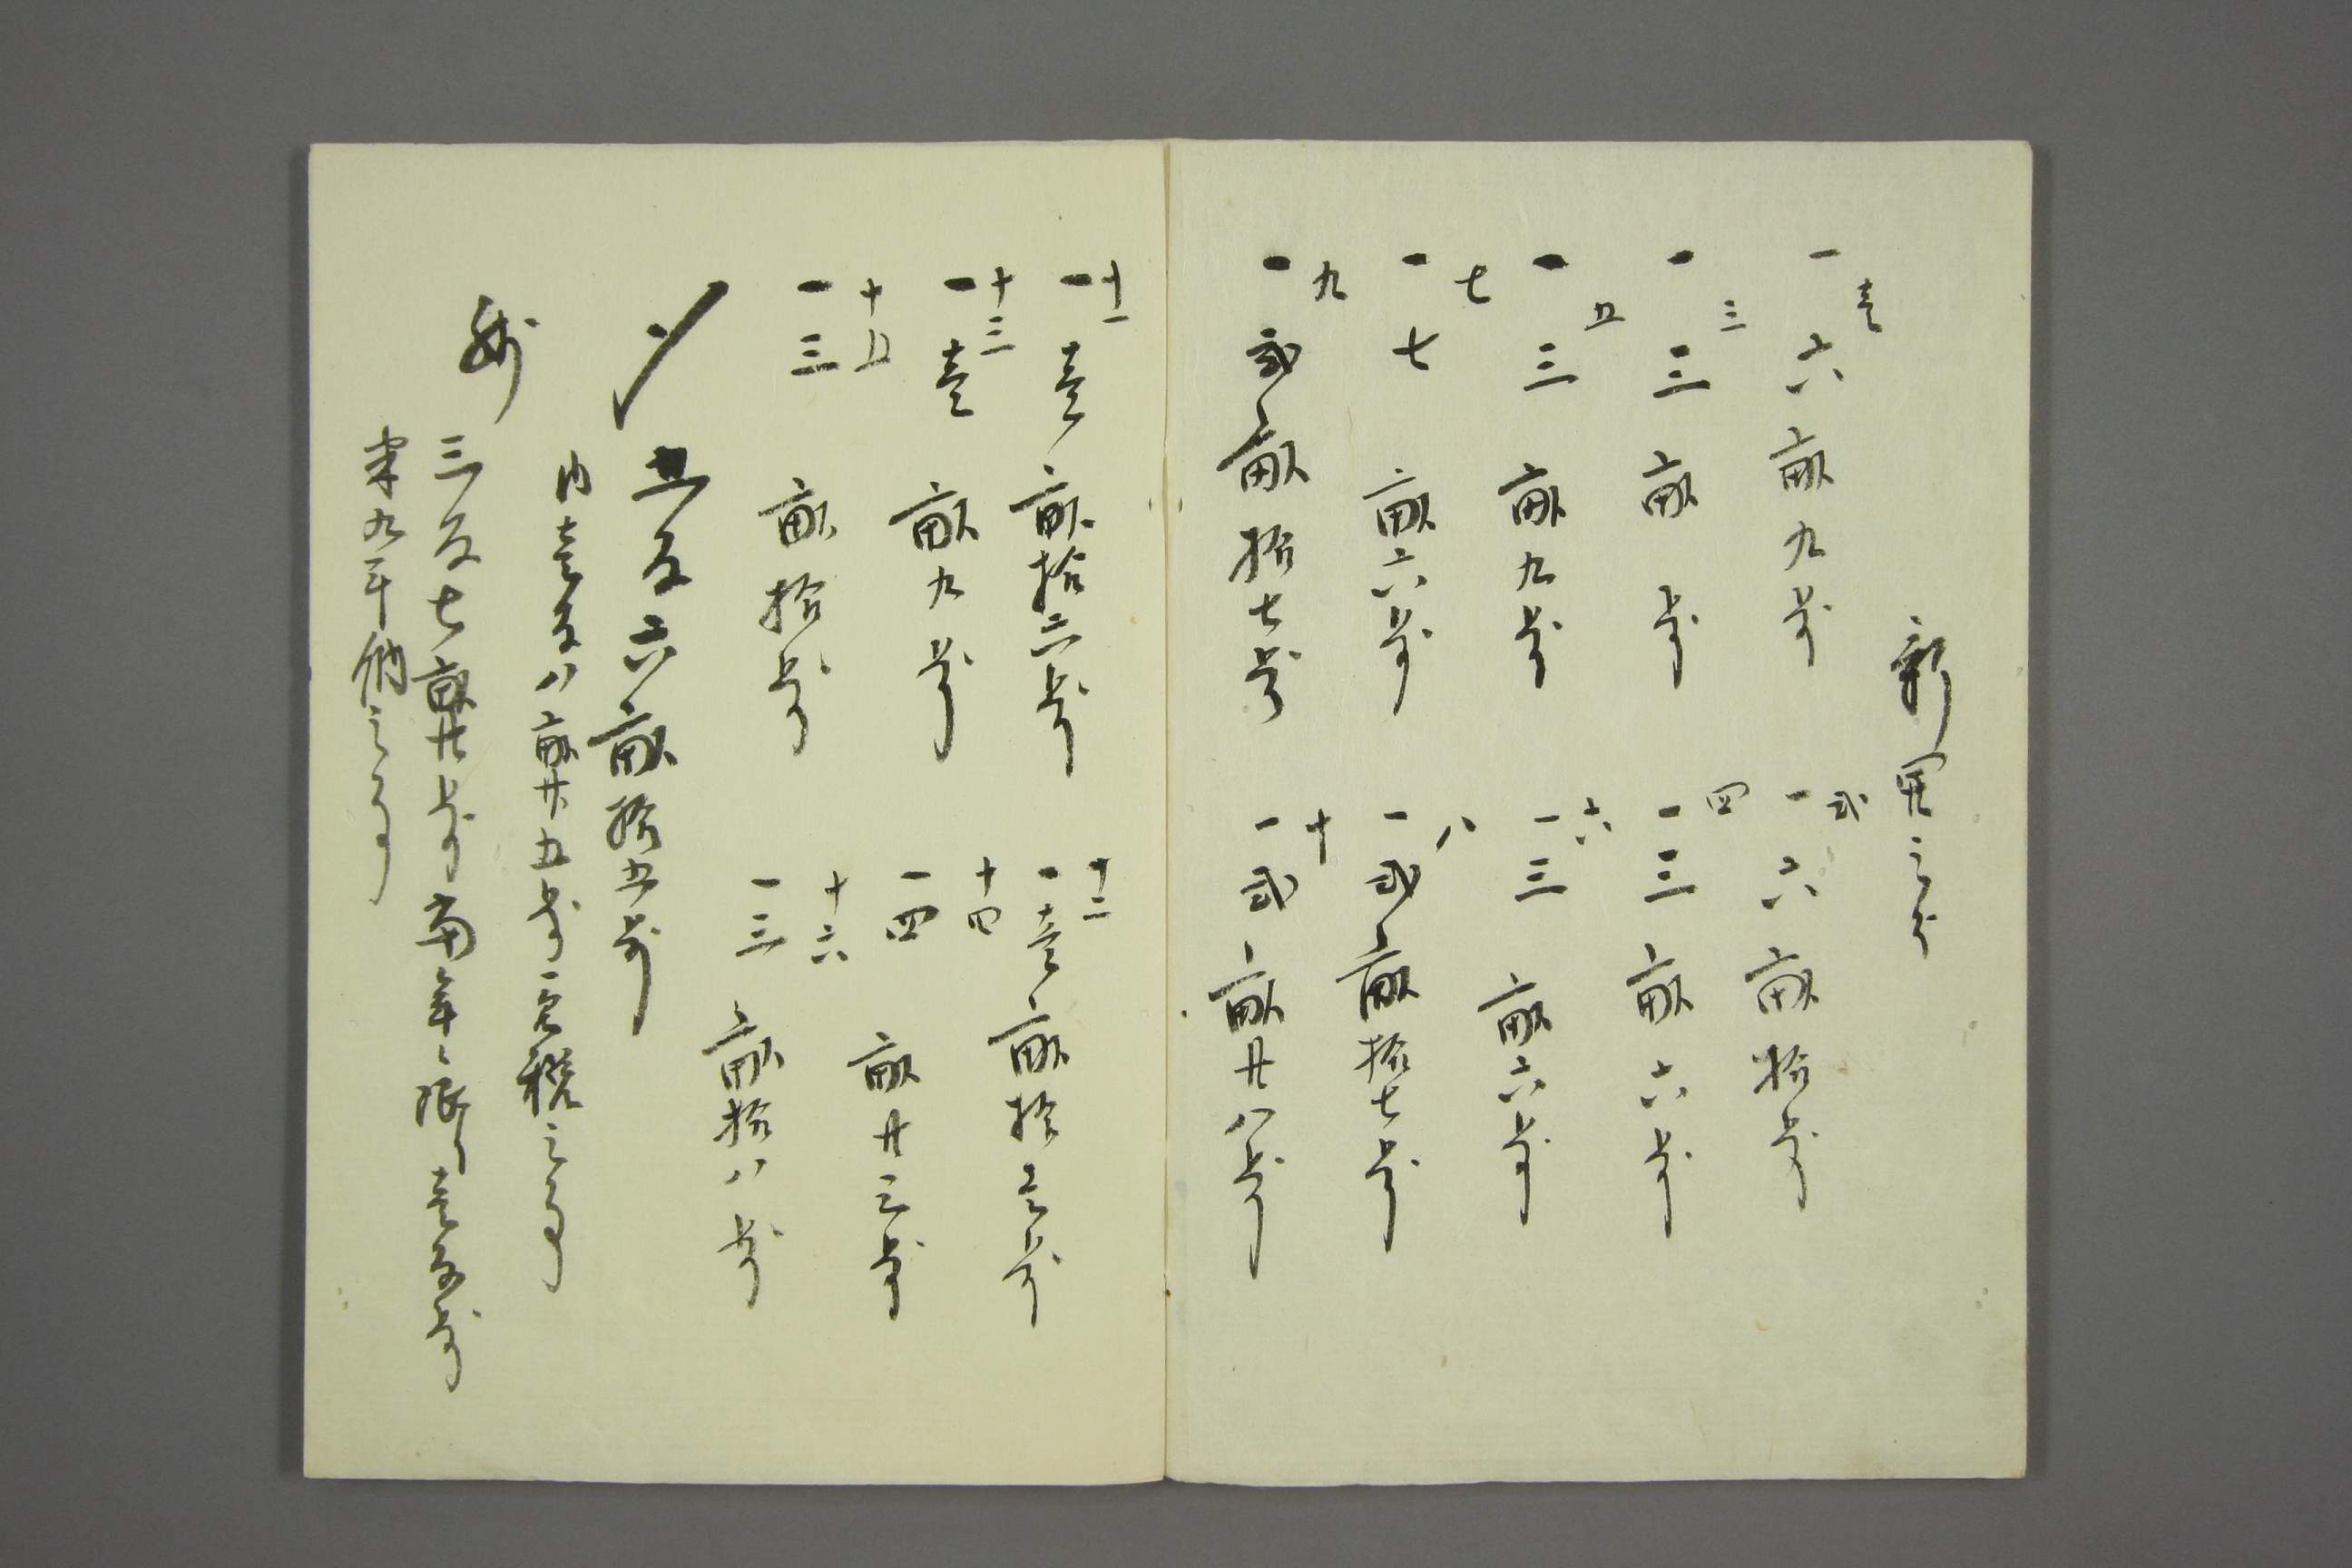 新開之分
壱
一六畝九歩
弐
一六畝拾歩
三
一三畝歩
四
一三畝六歩
五
一三畝九歩
六
一三畝六歩
七
一七畝六歩
八
一弐畝拾七歩
九
一弐畝拾七歩
十
一弐畝廿八歩
十一
一壱畝拾六歩
十二
一壱畝拾壱歩
十三
一壱畝九歩
十四
一四畝廿三歩
十五
一三畝拾歩
十六
一三畝拾八歩
〆五反六畝拾五歩
内壱反八畝廿五歩無税之事
残
三反七畝廿歩 年々限 壱反歩
来九年納之事